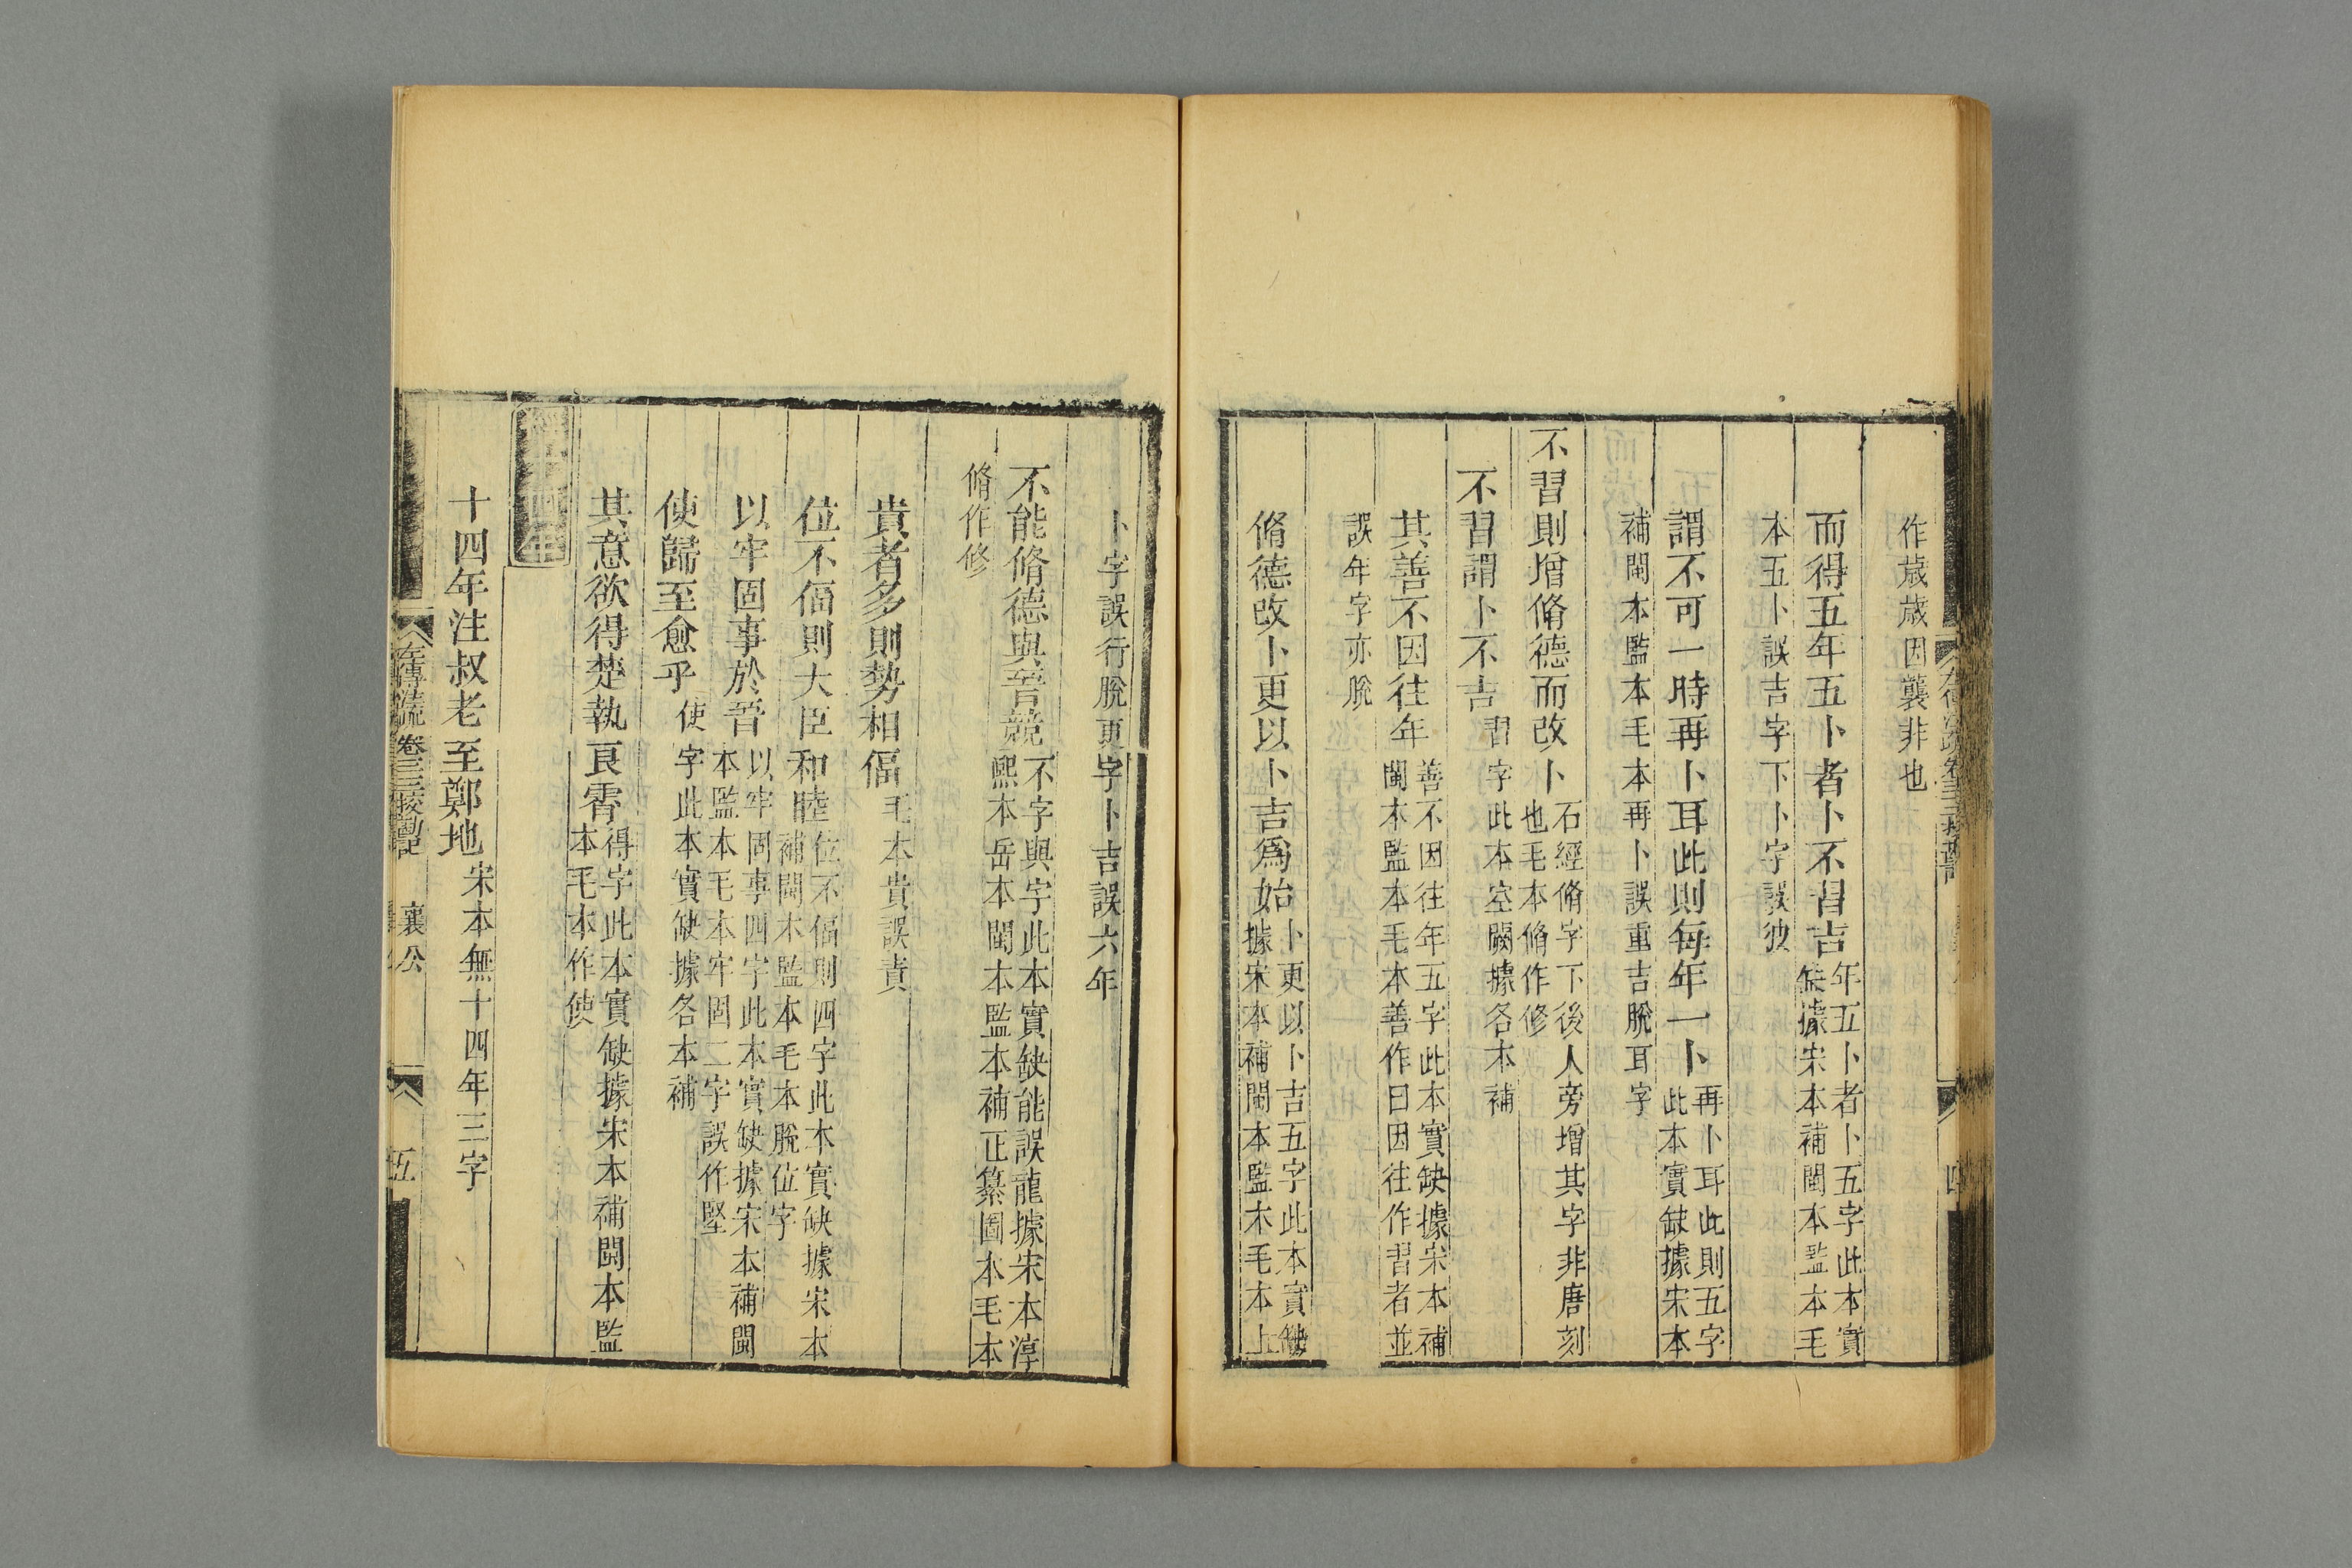 作歳歳因襲非也
而得五年五卜者卜不習吉年五卜者卜五字此本實
缺據宋本補閩本監本毛
本五卜誤吉字下卜字誤彼
謂不可一時再卜耳此則每年一卜再卜耳此則五字
此本實缺據宋本
補閩本監本毛本再卜誤重吉脫耳字
不習則增脩德而改卜石經脩字下後人旁增其字非唐刻
也毛本脩作修
不習謂卜不吉習字此本空闕據各本補
其善不因往年善不因往年五字此本實缺據宋本補
閩本監本毛本善作曰因往作習者並
誤年字亦脫
脩德改卜更以卜吉爲始卜更以卜吉五字此本實缺
據宋本補閩本監本毛本上
卜字誤行脫更字卜吉誤六年
不能脩德與晉競不字與字此本實缺能誤龍據宋本淳
熙本岳本閩本監本補正纂圖本毛本
脩作修
貴者多則勢相偪毛本貴誤責
位不偪則大臣和睦位不偪則四字此本實缺據宋本
補閩本監本毛本脫位字
以牢固事於晉以牢固事四字此本實缺據宋本補閩
本監本毛本牢固二字誤作堅
使歸至愈乎使字此本實缺據各本補
其意欲得楚執良霄得字此本實缺據宋本補閩本監
本毛本作使
經十四年
十四年注叔老至鄭地宋本無十四年三字
左傳注疏卷三十二校勘記
襄公
五